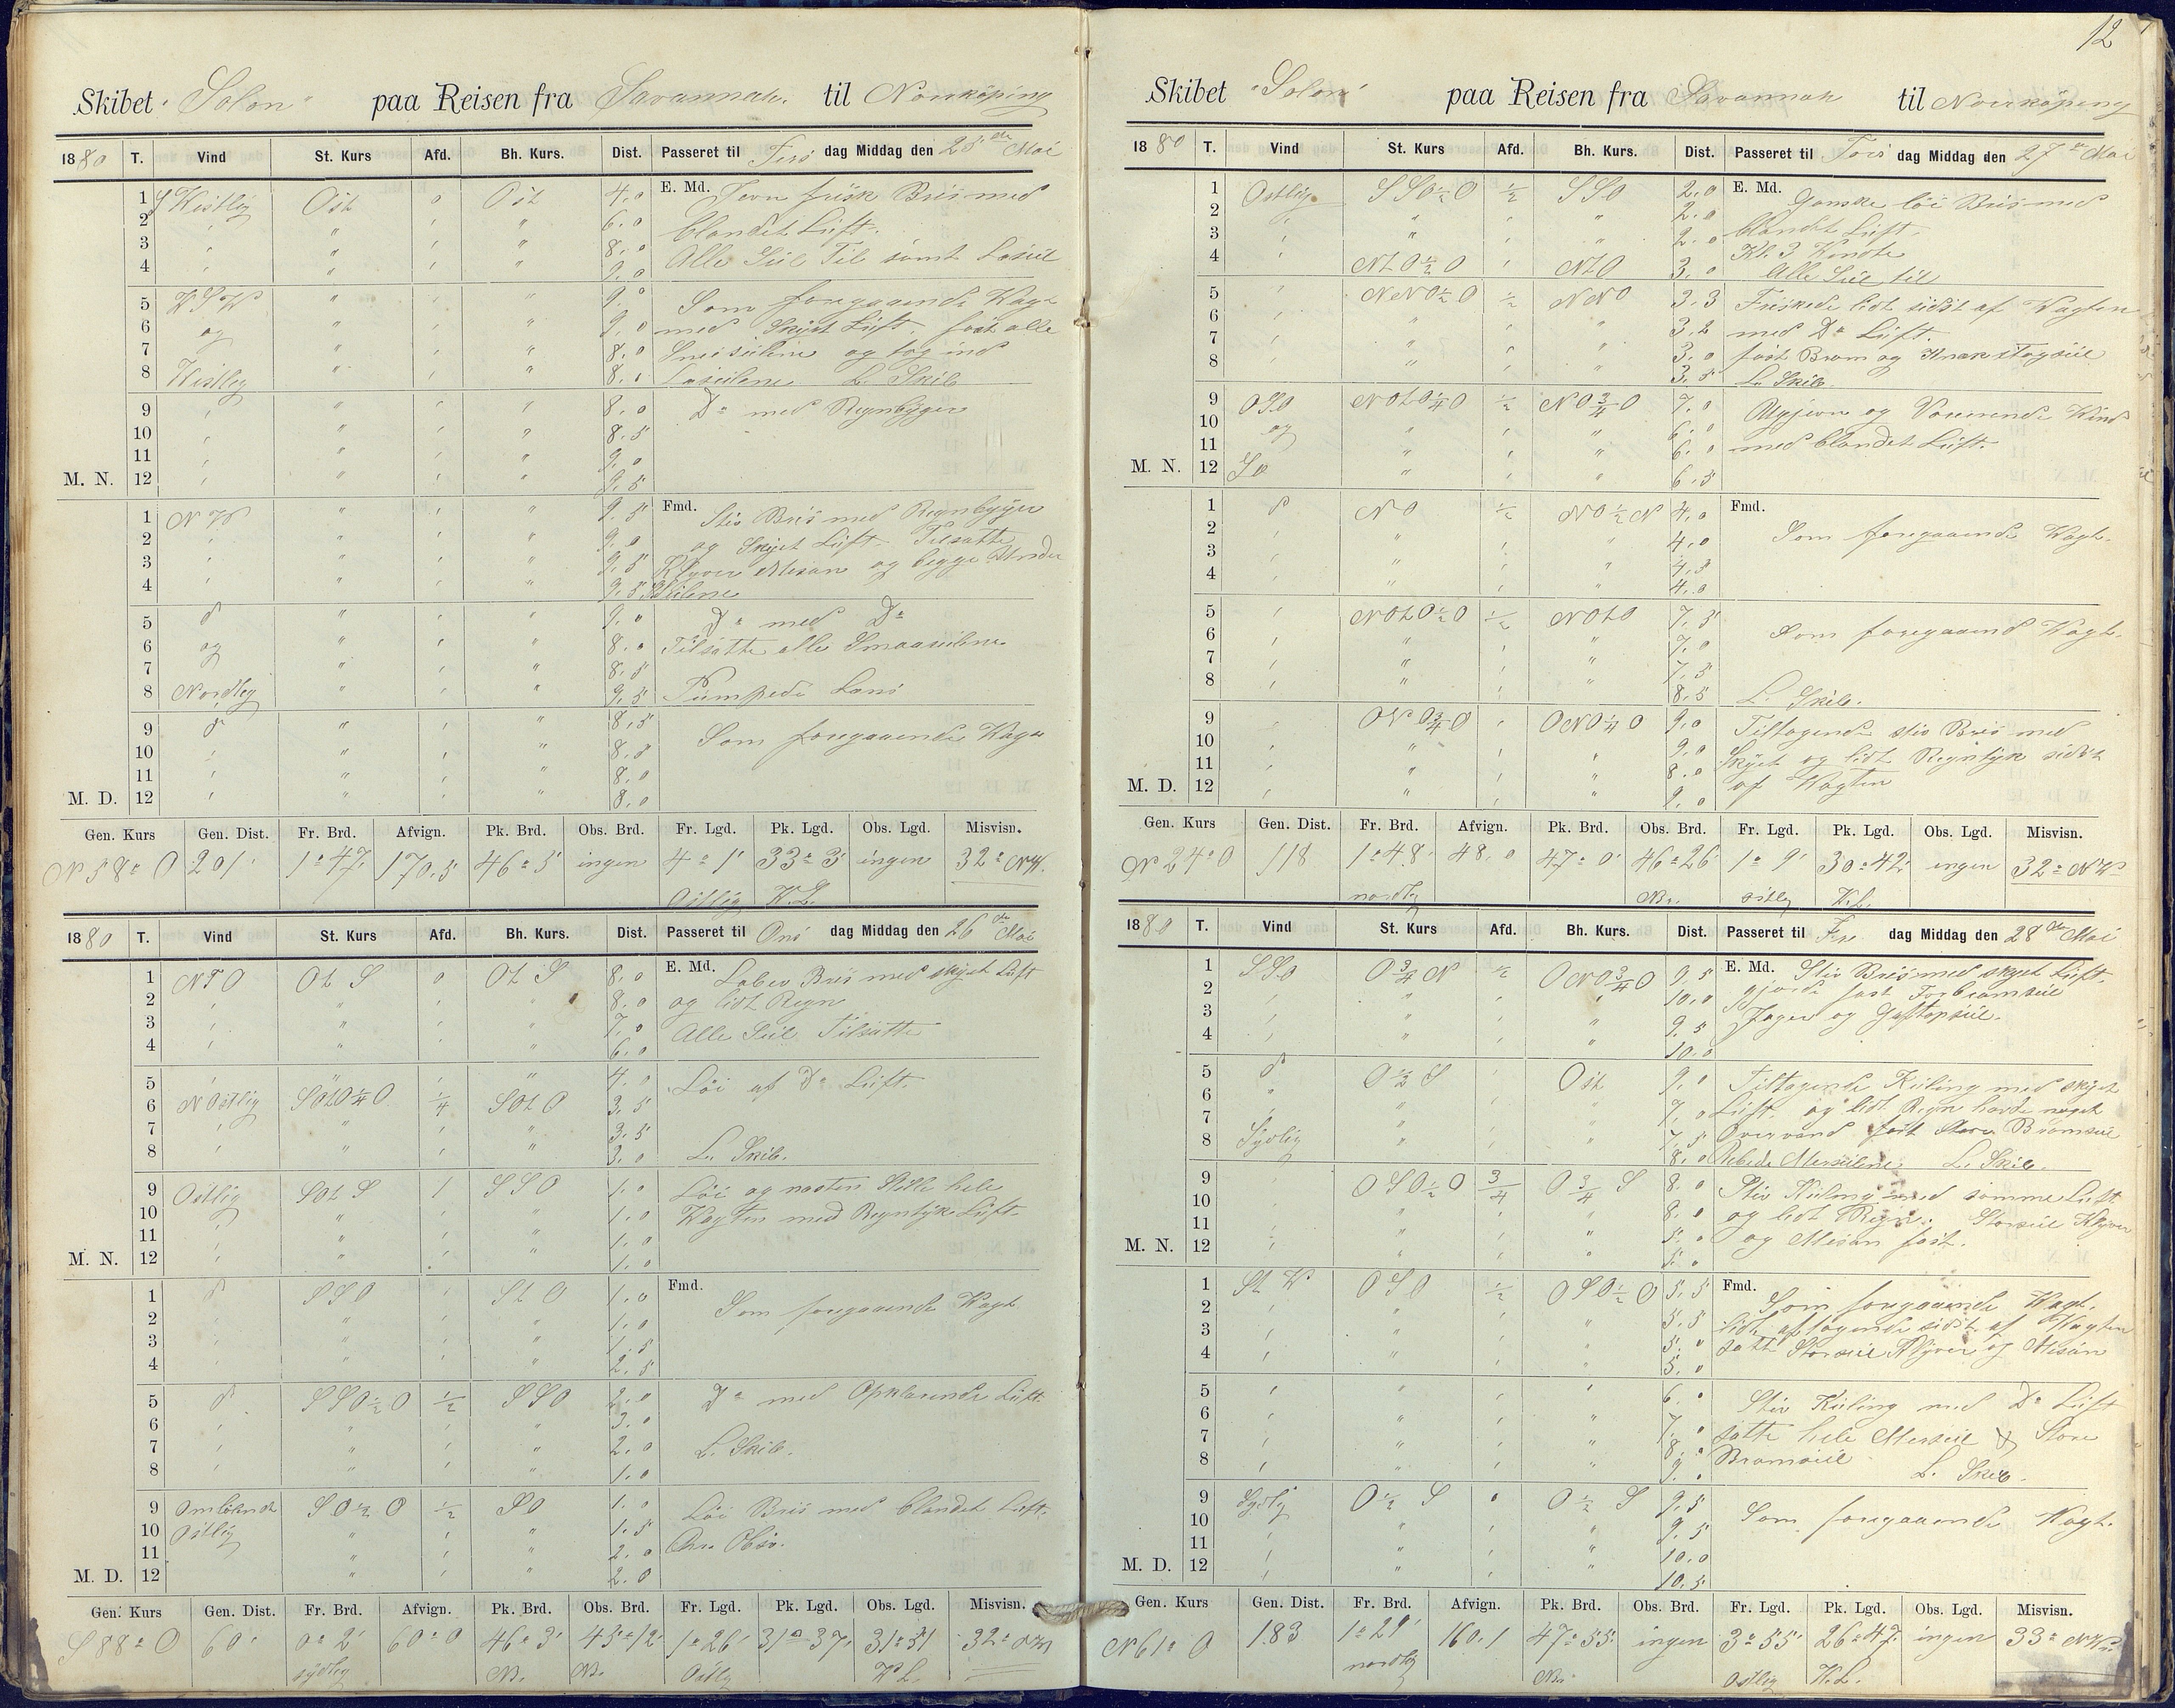 12
Skibet "Solon" paa Reisen fra Savannah til Norrköping
1880 T. Vind St. Kurs Afd. Bh. Kurs. Dist. Passeret til Tirs dag Middag den 25de Mai
1 S Westlig Ost 0 Ost 4,0 E. Md. Jevn frisk Bris med
2 " " " " 6,0 blandet Luft.
3 " " " " 8,0 Alle Seil Til samt Læseil
4 " " " " 9,0
5 WSW " " " 9,0 Som foregaaende Vagt
6 og " " " 9,0 med Skyet Luft. fast alle
7 " " " 8,0 Smaaseilene og tog ind
8 Westlig " " " 8,0 Læseilene L. Skib
9 " " " " 8,0 Do med Regnbyger
10 " " " " 8,5
11 " " " " 9,0
M. N. 12 " " " " 9,5
1 NW " " " 9,5 Fmd. Stiv Bris med Regnbyger
2 " " " " 9,0 og Skyet Luft. Tilsatte
3 " " " " 9,5 Klyver Mesan og begge Under
4 " " " " 9,5 Seilene
5 " " " 9,0 Do med Do
6 og " " " 8,0 Tilsatte alle Smaaseilene
7 " " " 8,5
8 Nordlig " " " 9,5 Pumpede Læns
9 " " " 8,5 Som foregaaende Vagt
10 " " " " 8,5
11 " " " " 8,0
M. D. 12 " " " " 8,0
Gen. Kurs Gen. Dist. Fr. Brd. Afvign. Pk. Brd. Obs. Brd. Fr. Lgd. Pk. Lgd. Obs. Lgd. Misvisn.
N 58° O 201' 1° 47' 170,5 46° 5' ingen 4° 1' 33° 3' ingen 32° NW.
Ostlig W.L.
1880 T. Vind St. Kurs Afd. Bh. Kurs. Dist. Passeret til Ons dag Middag den 26de Mai
1 NTO Ot S 0 Ot S 8,0 E. Md. Laber Bris med skyet Luft
2 " " " " 8,0 og lidt Regn
3 " " " " 7,0 Alle Seil Tilsatte
4 " " " " 6,0
5 " " " " 4,0 Löi af Do Luft.
6 N Ostlig SOtO¼O ¼ SOt O 3,5
7 " " " " 3,5
8 " " " " 3,0 L. Skib.
9 Ostlig SOt S 1 SSO 1,0 Löi og næsten Stille hele
10 " " " " 1,0 Vagten med Regntyk Luft.
11 " " " " 1,0
M. N. 12 " " " " 1,0
1 SSO " St O 1,0 Fmd.
2 " " " " 1,0 Som foregaaende Vagt
3 " " " " 1,5
4 " " " " 2,5
5 SSO½O ½ SSO 2,0 Do med Opklarende Luft.
6 " " " " 3,0
7 " " " " 2,0 L. Skib.
8 " " " " 1,0
9 Omlöbende SO½O ½ SO 1,0 Löi Bris med blandet Luft.
10 Ostlig " " " 1,5
11 " " " 2,0 Obsv.
M. D. 12 " " " 2,0
Gen. Kurs Gen. Dist. Fr. Brd. Afvign. Pk. Brd. Obs. Brd. Fr. Lgd. Pk. Lgd. Obs. Lgd. Misvisn.
S 88° O 60' 0° 2' 60° 0 46° 3' 45° 12' 1° 26' 31° 37' 31° 51 32° NW
sydlig N. N. Ostlig W L.
Skibet "Solon" paa Reisen fra Savannah til Norrköping
1880 T. Vind St. Kurs Afd. Bh. Kurs. Dist. Passeret til Tors dag Middag den 27de Mai
1 Ostlig SSO½O ½ SSO 2,0 E. Md. Ganske löi Bris med
2 " " " " 2,0 blandet Luft.
3 " " " " 2,0 Kl. 3 Vendte
4 NtO½O " NtO 3,0 Alle Seil til
5 " NNO½O ½ NNO 3,3 Friskede lidt sidst af Vagten
6 " " " " 3,2 med Do Luft.
7 " " " " 3,0 fast Bram og Stagseil
8 " " " " 3,5 L. Skib.
9 OSO NOtO¼O ½ NO¾O 7,0 Ujevn og Voxende Vind
10 og " " " 6,0 med blandet Luft.
11 " " " 6,0
M. N. 12 SO " " " 6,5
1 NO ½ NO½N 4,0 Fmd.
2 " " " " 4,0 Som foregaaende Vagt.
3 " " " " 4,5
4 " " " " 4,0
5 " NOtO½O ½ NOtO 7,5 Som foregaaend Vagt.
6 " " " " 7,0
7 " " " " 7,5
8 " " " " 8,5 L. Skib.
9 " ONO¾O " ONO¼O 9,0 Tiltagende stiv Bris med
10 " " " " 9,0 Skyet og lidt Regntyk sidst
11 " " " " 8,0 af Vagten
M. D. 12 " " " " 9,0
Gen. Kurs Gen. Dist. Fr. Brd. Afvign. Pk. Brd. Obs. Brd. Fr. Lgd. Pk. Lgd. Obs. Lgd. Misvisn.
N 24° O 118 1° 48' 48,0 47° 0' 46° 26' 1° 9' 30° 42' ingen 32° NW
nordlig N. ostlig W.L.
1880 T. Vind St. Kurs Afd. Bh. Kurs. Dist. Passeret til Fre dag Middag den 28de Mai
1 SSO O¾N ½ ONO¾O 9,5 E. Md. Stiv Bris med skyet Luft.
2 " " " " 10,0 gjorde fast Forbramseil
3 " " " " 9,5 Jager og Gaftopseil.
4 " " " " 10,0
5 O½S " Ost 9,0 Tiltagende Kuling med skyet
6 " " " " 7,0 Luft og lidt Regn havde noget
7 " " " " 7,5 Overvand fast Store Bramseil
8 Sydlig " " " 8,0 Rebede Merseilene L. Skib.
9 " OSO½O ¾ O¾S 8,0 Stiv Kuling med samme Luft
10 " " " " 8,0 og lidt Regn. Storseil Klyver
11 " " " " 5,0 og Mesan fast.
M. N. 12 " " " " 5,0
1 St W OSO ½ OSO½O 5,5 Fmd. Som foregaaende Vagt.
2 " " " " 5,5 lidt aftagende sidst af Vagten
3 " " " " 5,0 satte Storseil Klyver og Mesan
4 " " " " 5,0
5 " " " " 6,0 Stiv Kuling med Do Luft
6 " " " " 7,0 satte hele Merseil & Store
7 " " " " 8,0 Bramseil
8 " " " " 9,0 L. Skib.
9 Sydlig O½S 0 O½S 9,5
10 " " " " 9,5 Som foregaaende Vagt.
11 " " " " 10,0
M. D. 12 " " " " 10,5
Gen. Kurs Gen. Dist. Fr. Brd. Afvign. Pk. Brd. Obs. Brd. Fr. Lgd. Pk. Lgd. Obs. Lgd. Misvisn.
N 61° O 183 1° 29' 160,1 47° 55' ingen 3° 55' 26° 47' ingen 33° NW.
nordlig N. Ostlig W.L.